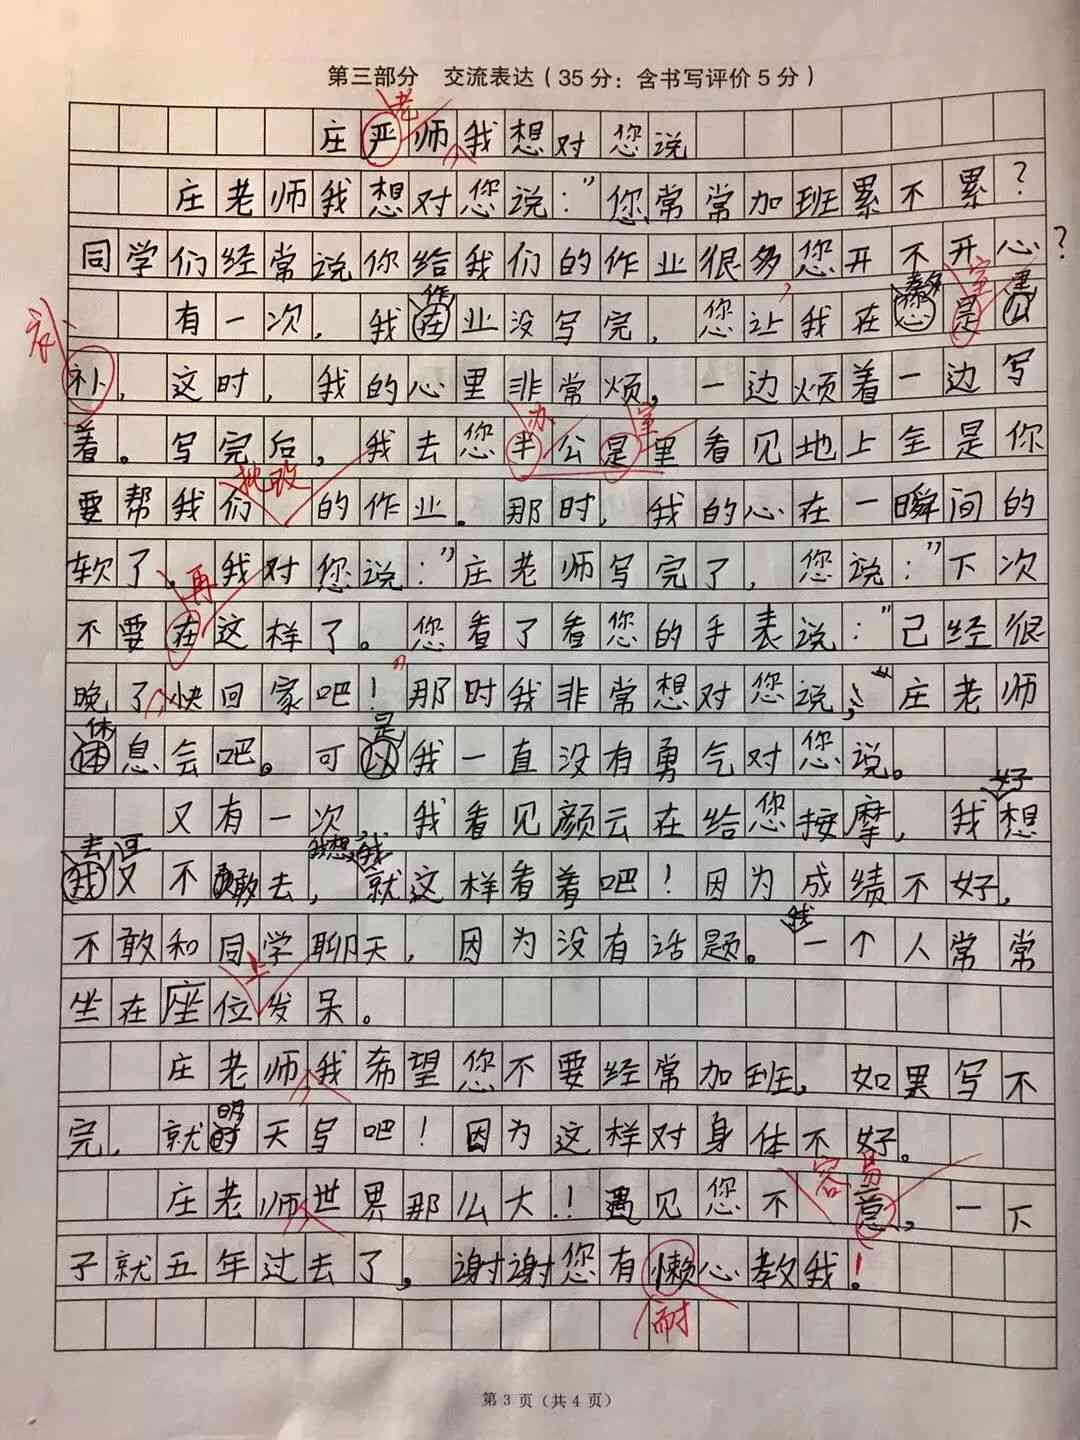 第三部分 交流表达（35分：含书写评价5分）
老
庄严师我想对您说
庄老师我想对您说：”您常常加班累不累？
同学们经常说你给我们的作业很多您开不开心？
作 教 室
有一次，我在业没写完，您让我在是
补
补，这时，我的心里非常烦，一边烦着一边写
办 室
着。写完后，我去您半公是里看见地上全是你
批改
要帮我们的作业。那时，我的心在一瞬间的
软了，我对您说：”庄老师写完了，您说：”下次
再
不要在这样了。您看了看您的手表说：”已经很
晚了快回家吧！”那时我非常想对您说，“庄老师
休 是
体息会吧。可以我一直没有勇气对您说。
好
又有一次，我看见颜云在给您按摩，我想
去可 我想我
我又不敢去，就这样看着吧！因为成绩不好，
我
不敢和同学聊天，因为没有话题。一个人常常
上
坐在座位发呆。
庄老师我希望您不要经常加班，如果写不
明
完，就时天写吧！因为这样对身体不好。
容易
庄老师世界那么大！遇见您不意，一下
子就五年过去了，谢谢您有懒心教我！
耐
第3页（共4页）